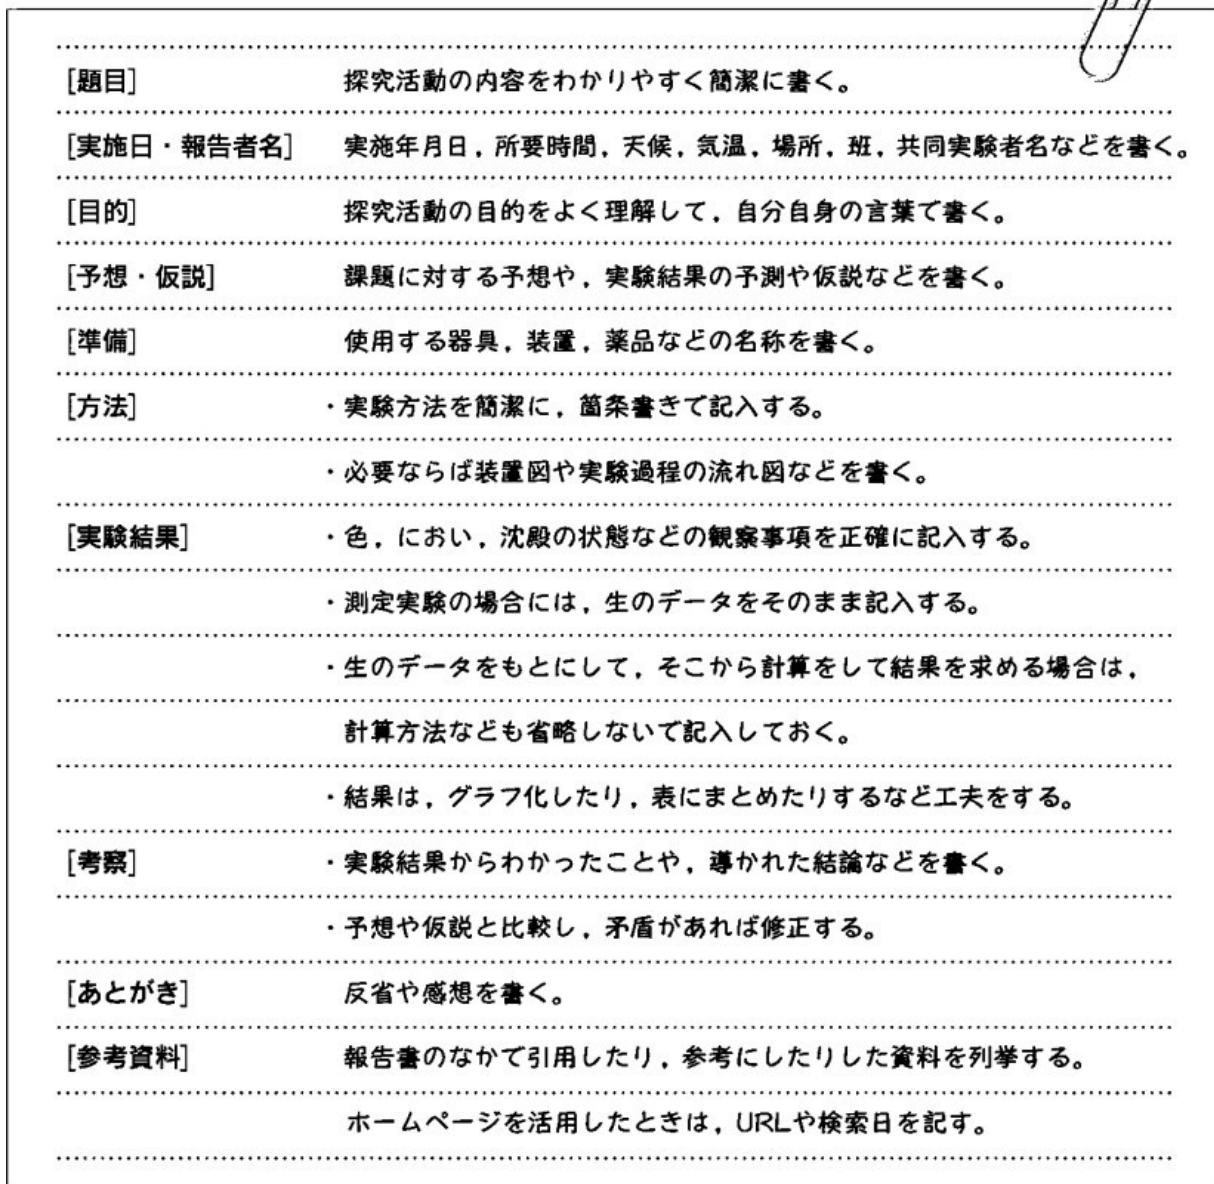 [題目] 探究活動の内容をわかりやすく簡潔に書く。
[実施日・報告者名] 実施年月日，所要時間，天候，気温，場所，班，共同実験者名などを書く。
[目的] 探究活動の目的をよく理解して，自分自身の言葉で書く。
[予想・仮説] 課題に対する予想や，実験結果の予測や仮説などを書く。
[準備] 使用する器具，装置，薬品などの名称を書く。
[方法] ・実験方法を簡潔に，箇条書きで記入する。
・必要ならば装置図や実験過程の流れ図などを書く。
[実験結果] ・色，におい，沈殿の状態などの観察事項を正確に記入する。
・測定実験の場合には，生のデータをそのまま記入する。
・生のデータをもとにして，そこから計算をして結果を求める場合は，
計算方法なども省略しないで記入しておく。
・結果は，グラフ化したり，表にまとめたりするなど工夫をする。
[考察] ・実験結果からわかったことや，導かれた結論などを書く。
・予想や仮説と比較し，矛盾があれば修正する。
[あとがき] 反省や感想を書く。
[参考資料] 報告書のなかで引用したり，参考にしたりした資料を列挙する。
ホームページを活用したときは，URLや検索日を記す。